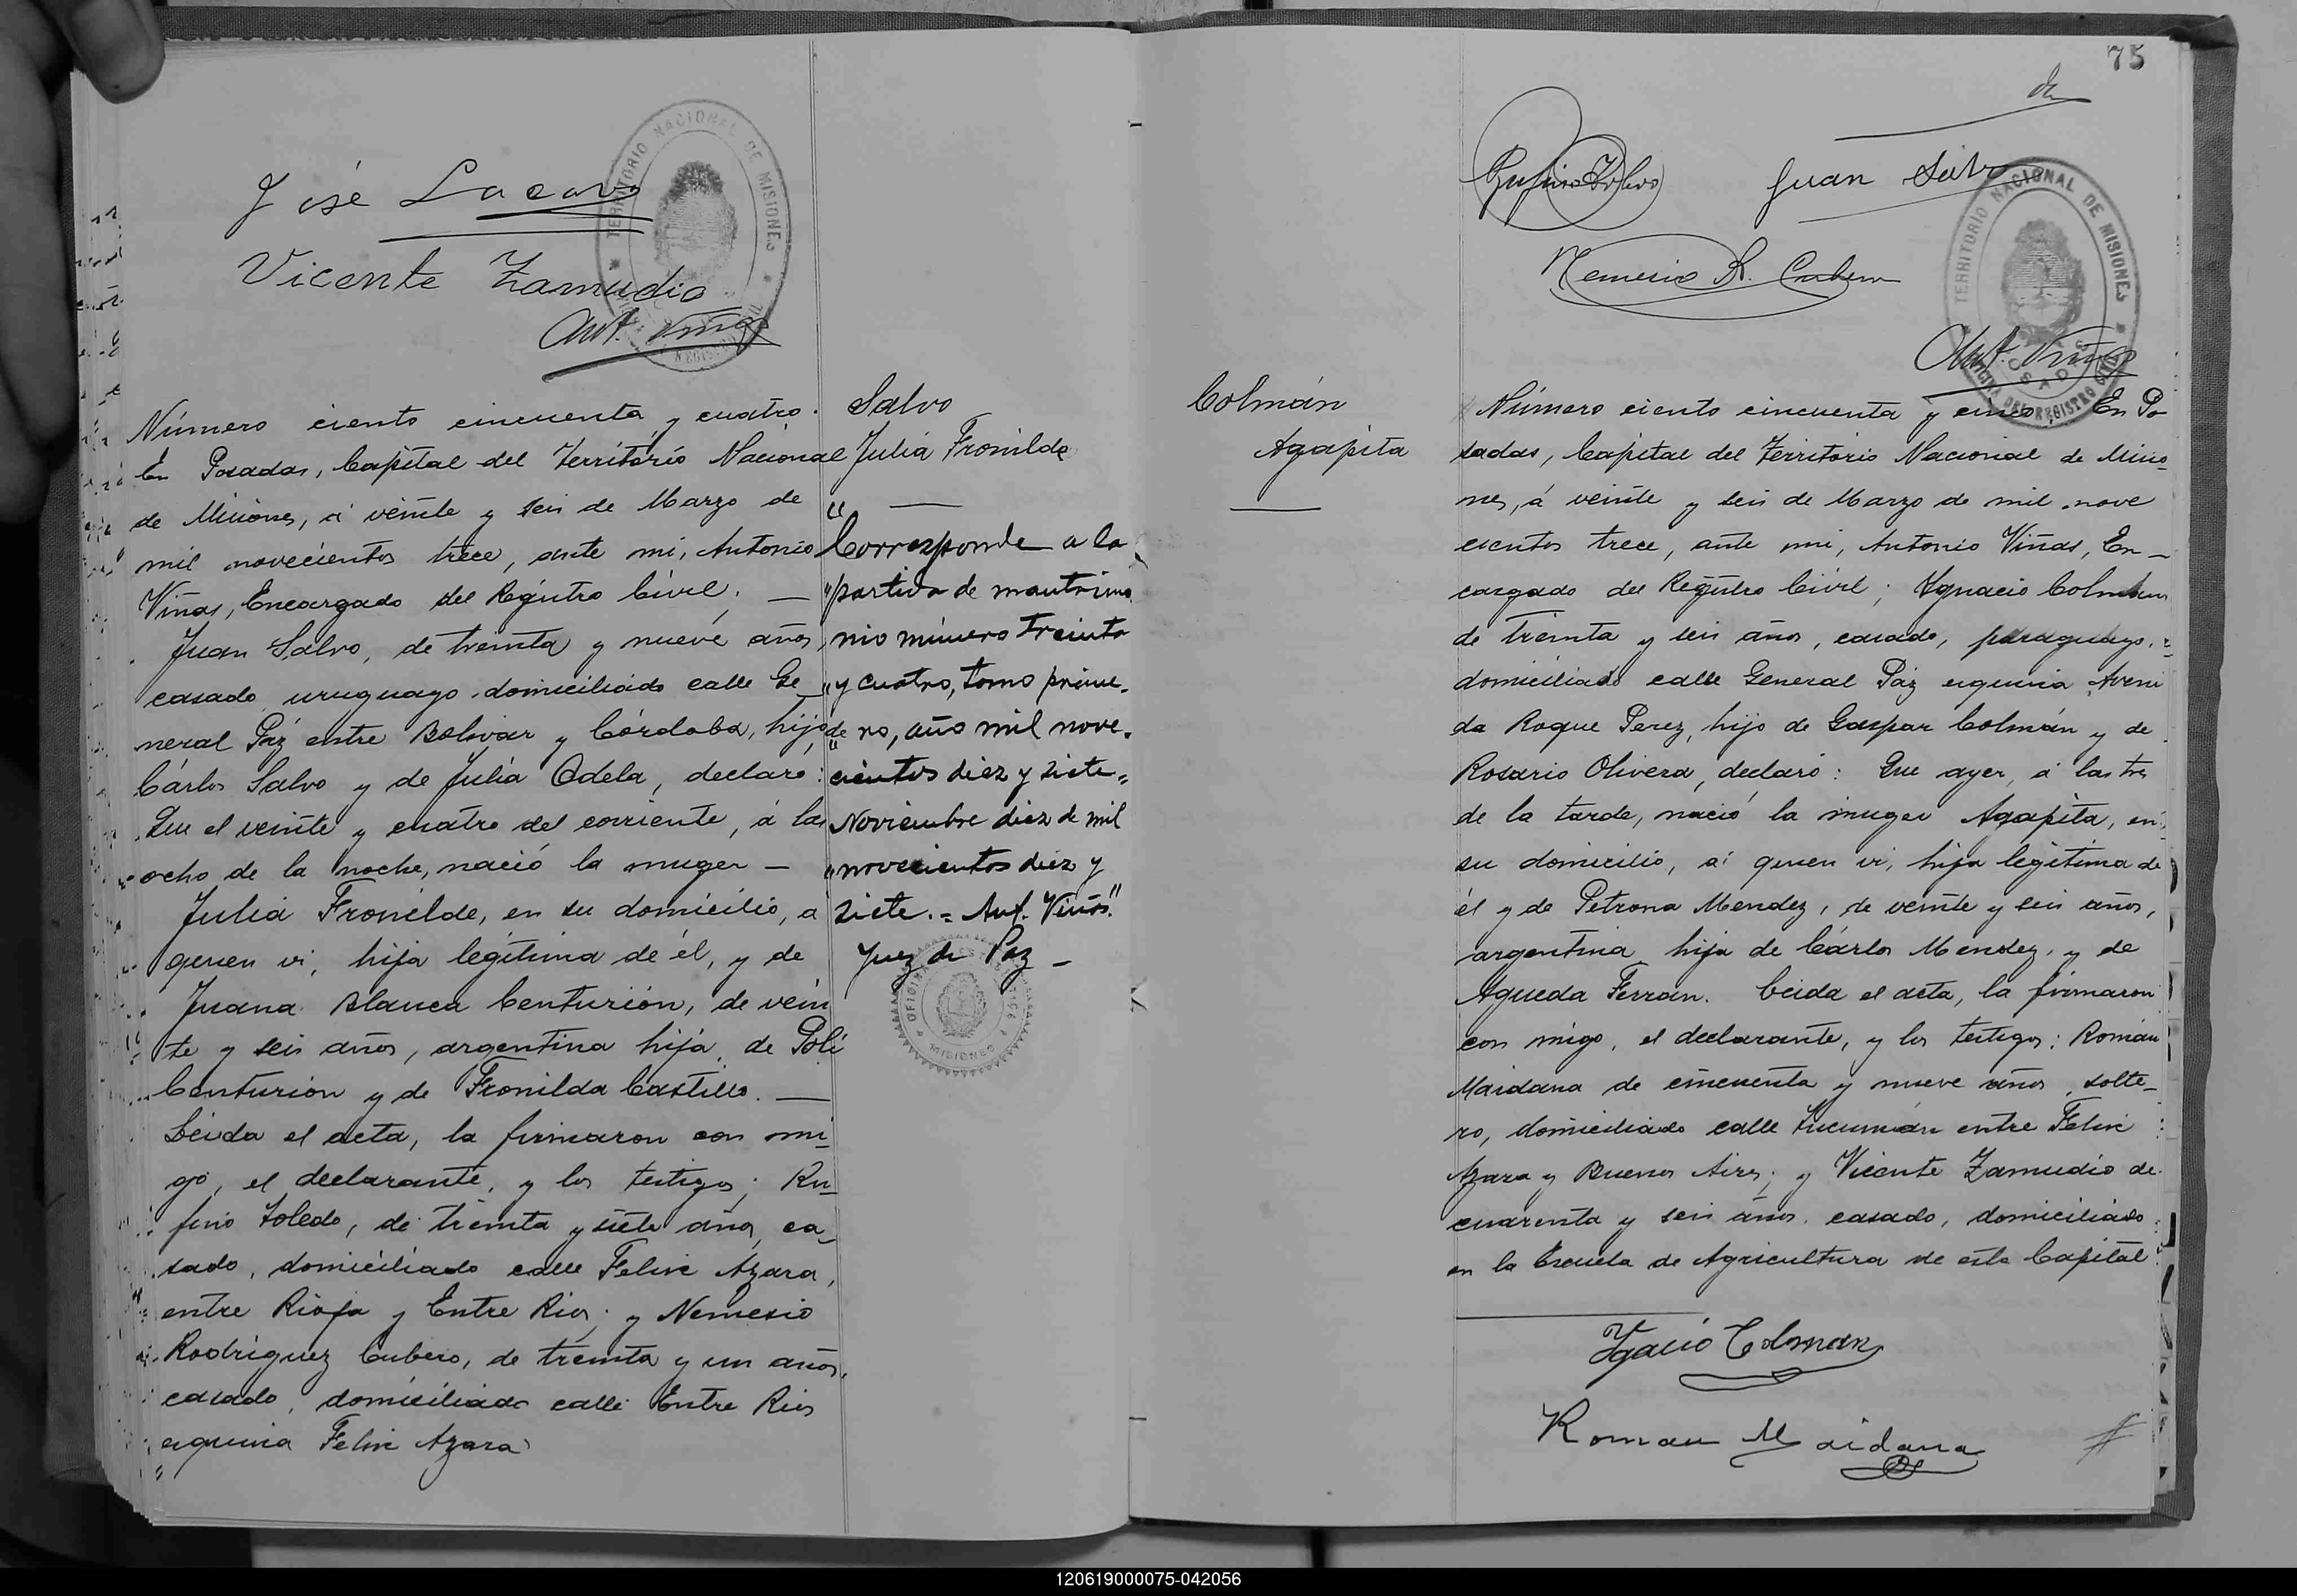 José Lacavo
Vicente Zamudio
Ant. Viñas
TERRITORIO NACIONAL DE MISIONES
Número ciento cincuenta y cuatro.
En Posadas, Capital del Territorio Nacional
de Misiones, á veinte y seis de Marzo de
mil novecientos trece, ante mi, Antonio
Viñas, Encargado del Registro Civil; —
Juan Salvo, de treinta y nueve años,
casado, uruguayo, domiciliado calle Ge
neral Páz entre Bolivar y Córdoba, hijo de
Cárlos Salvo y de Julia Odela, declaró:
Que el veinte y cuatro del corriente, á las
ocho de la noche, nació la muger —
Julia Fronilde, en su domicilio, a
quien vi, hija legítima de él, y de
Juana Blanca Centurión, de vein
te y seis años, argentina hija de Poli
Centurión y de Fronilda Castillo. —
Leida el acta, la firmaron con mi_
go, el declarante, y los testigos; Ru_
fino Toledo, de treinta y siete años, ca_
sado, domiciliado calle Felix Azara,
entre Rioja y Entre Rios; y Nemesio
Rodríguez Cubero, de treinta y un años,
casado, domiciliado calle Entre Rios
esquina Felix Azara
Salvo
Julia Fronilde
" —
Corresponde a la
"partida de mautrimo
nio número treinta
"y cuatro, tomo prime-
"ro, año mil nove-
cientos diez y siete-
Noviembre diez de mil
"novecientos diez y
siete.= Ant. Viñas"
Juez de Paz —
OFICINA
MISIONES
75
de
Rufino Toledo
Juan Salvo
Nemesio R. Cubero
Ant. Viñas
TERRITORIO NACIONAL DE MISIONES
POSADAS
OFICINA DEL REGISTRO CIVIL
Colmán
Agapita
Número ciento cincuenta y cinco. En Po
sadas, Capital del Territorio Nacional de Misio_
nes, á veinte y seis de Marzo de mil nove
cientos trece, ante mi, Antonio Viñas, En_
cargado del Registro Civil; Ygnacio Colman
de treinta y seis años, casado, paraguayo,
domiciliado calle General Páz esquina Aveni
da Roque Perez, hijo de Gaspar Colmán y de
Rosario Olivera, declaró: Que ayer, á las tres
de la tarde, nació la muger Agapita, en
su domicilio, á quien vi, hija legítima de
él y de Petrona Mendez, de veinte y seis años,
argentina, hija de Cárlos Mendez, y de
Agueda Ferran. Leida el acta, la firmaron
con migo, el declarante, y los testigos: Román
Maidana de cincuenta y nueve años, solte_
ro, domiciliado calle Tucumán entre Felix
Azara y Buenos Aires; y Vicente Zamudio de
cuarenta y seis años, casado, domiciliado
en la Escuela de Agricultura de esta Capital
Ygacio Colman
Roman Maidana
120619000075-042056